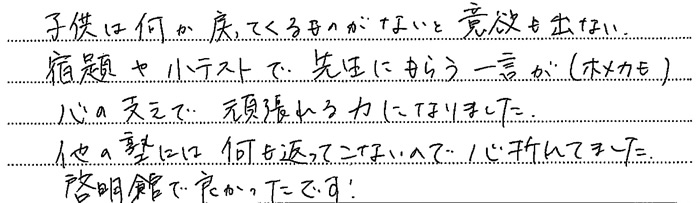 子供は何か戻ってくるものがないと意欲も出ない.
宿題や小テストで先生にもらう一言が(ホメカも)
心の支えで頑張れる力になりました.
他の塾には何も返ってこないので心折れてました.
啓明館で良かったです!